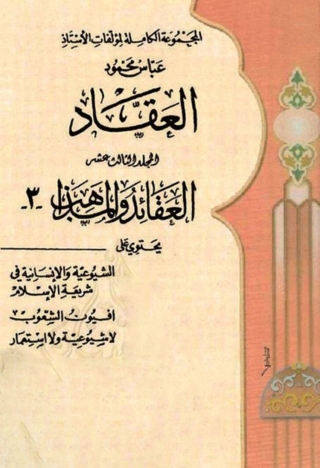 المجموعة الكاملة لمؤلفات الأستاذ
عباس محمود
العقاد
المجلد الثالث عشر
العقائد والمذاهب -٣-
يحتوي على
الشيوعية والإنسانية في
شريعة الإسلام
أفيون الشعوب
لاشيوعية ولا استعمار